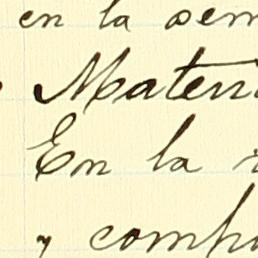 en la sem
Materi
En la
y comp